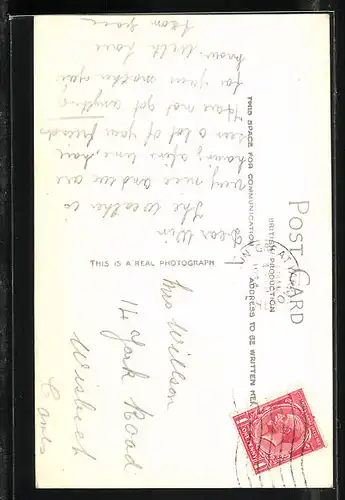 POST CARD
BRITISH PRODUCTION
THIS SPACE FOR COMMUNICATION
ADDRESS TO BE WRITTEN HERE
THIS IS A REAL PHOTOGRAPH
Dear Win
The weather is
very nice and we are
having a fine time, have
seen a lot of your friends
Have not got anything
for your mother you
know. With love
from
Mrs Willson
14 York Road
Wisbech
Cambs